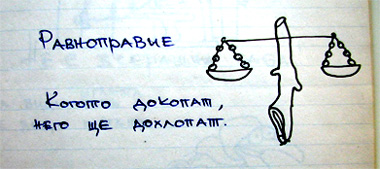 Равноправие
Когото докопат,
него ще дохлопат.